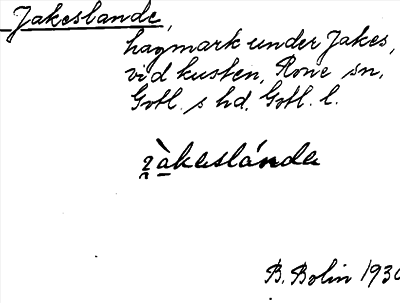 Jakeslande,
hagmark under Jakes,
vid kusten, Rone sn,
Gotl. s hd. Gotl. l.
B. Bolin 193